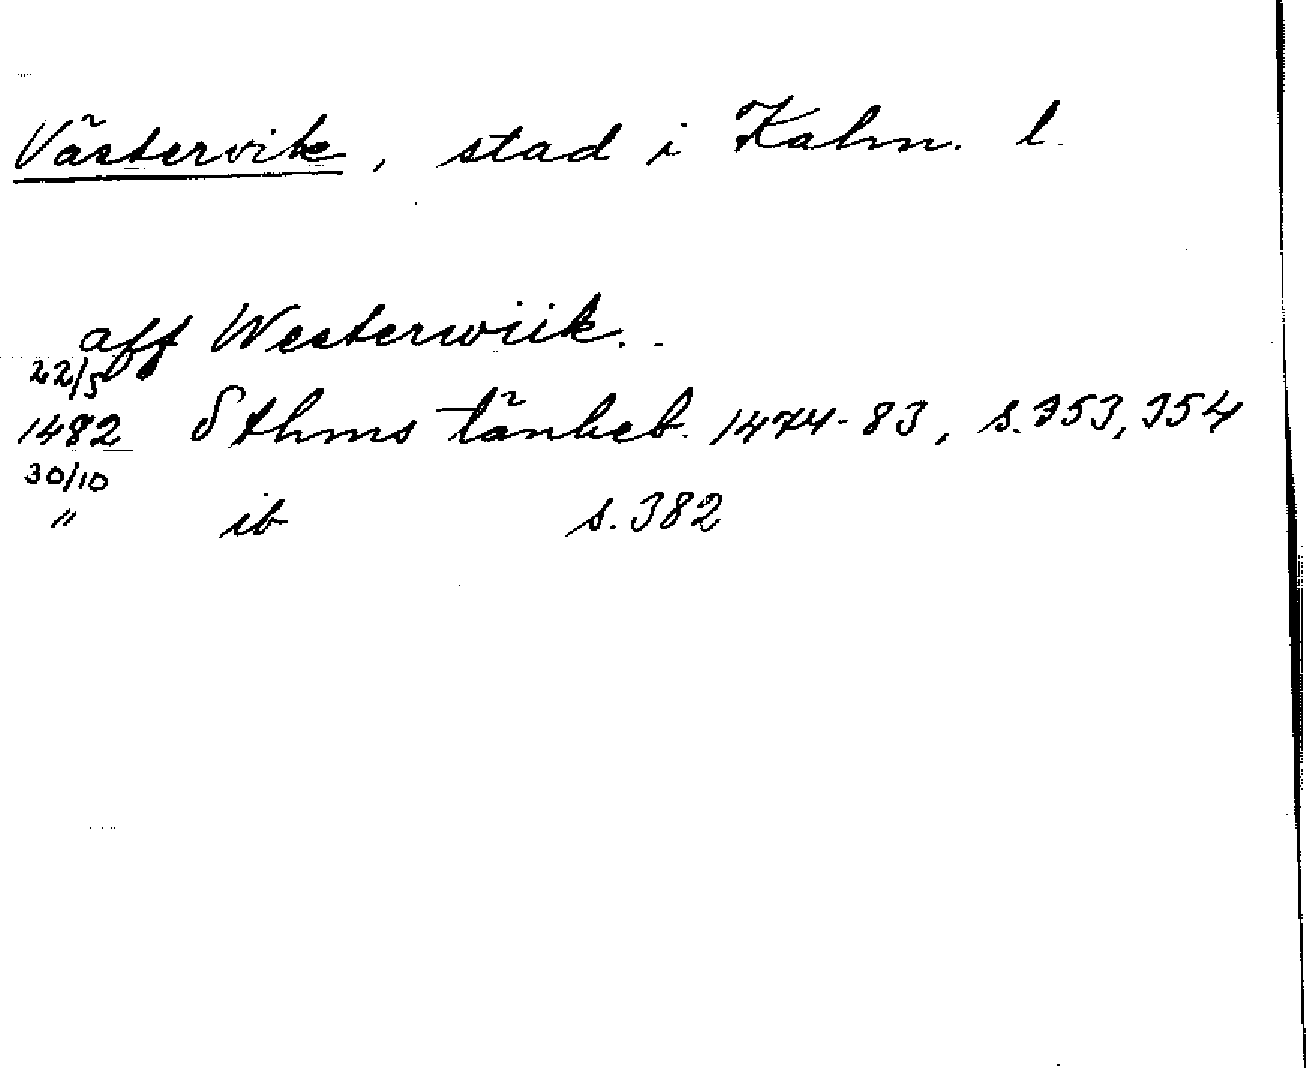 Västervik, stad i Kalm. l.
aff Westerwiik.
22/5
1482 Sthms tänkeb. 1474-83, s. 353, 354
30/10
" ib s. 382